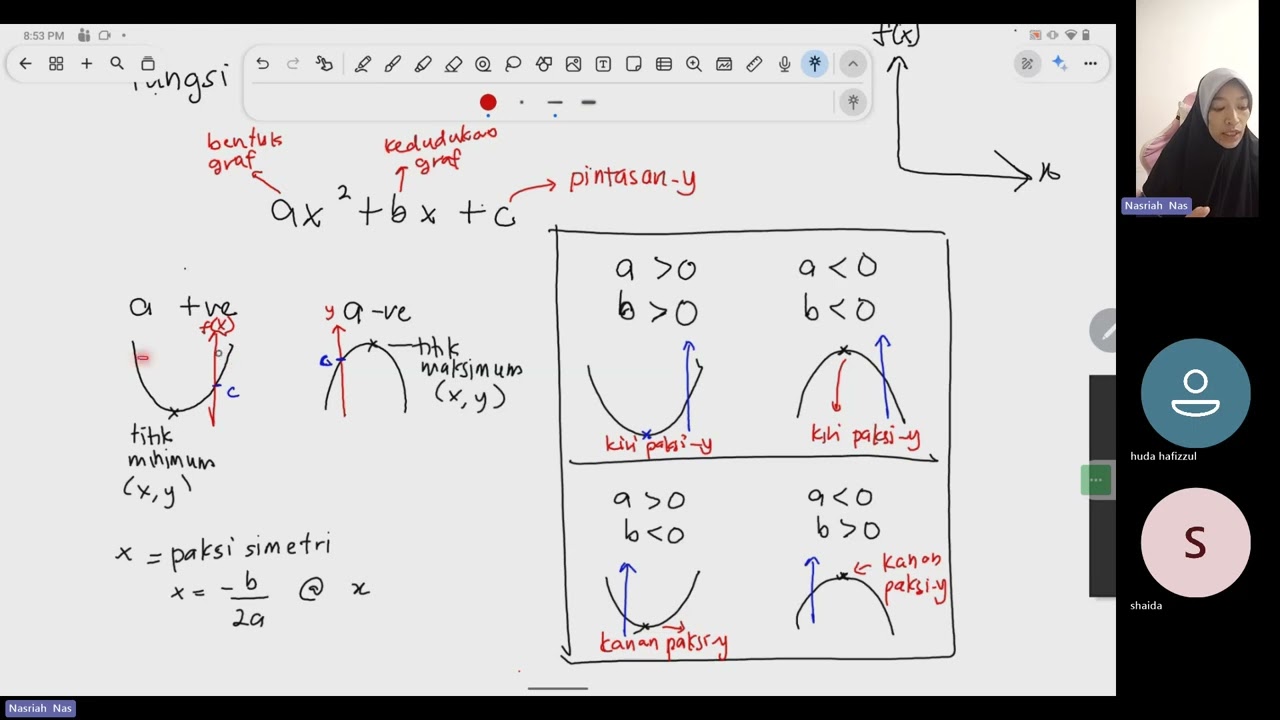 8:53 PM
fungsi
f(x)
x
bentuk
graf
kedudukan
graf
pintasan-y
ax² + bx + c
a +ve
f(x)
c
titik
minimum
(x, y)
y
a -ve
c
titik
maksimum
(x, y)
x = paksi simetri
x = -b/2a @ x
a > 0
b > 0
kiri paksi-y
a < 0
b < 0
kiri paksi-y
a > 0
b < 0
kanan paksi-y
a < 0
b > 0
kanan
paksi-y
Nasriah Nas
huda hafizzul
S
shaida
Nasriah Nas